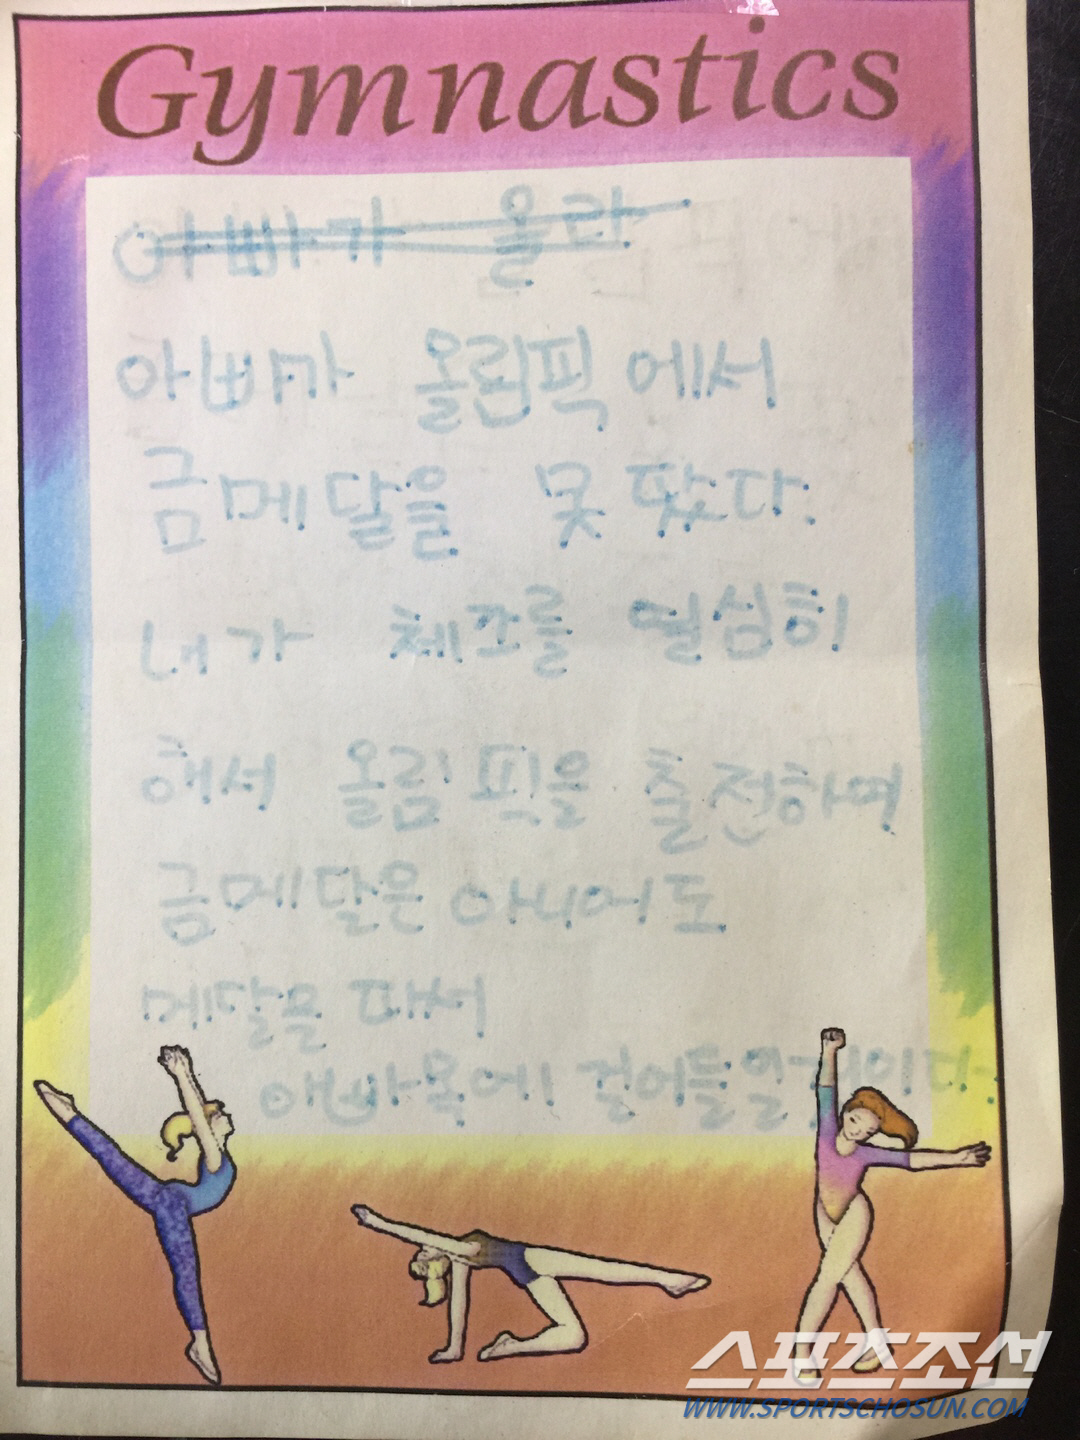 Gymnastics
아빠가 올라
아빠가 올림픽에서
금메달을 못 땄다.
내가 체조를 열심히
해서 올림픽을 출전하며
금메달은 아니어도
메달을 대서
아빠목에 걸어들일것이다.
스포츠조선
WWW.SPORTSCHOSUN.COM